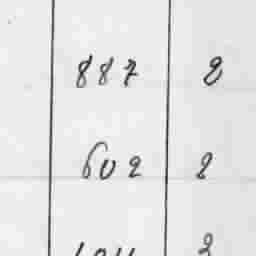 887 2
602 2